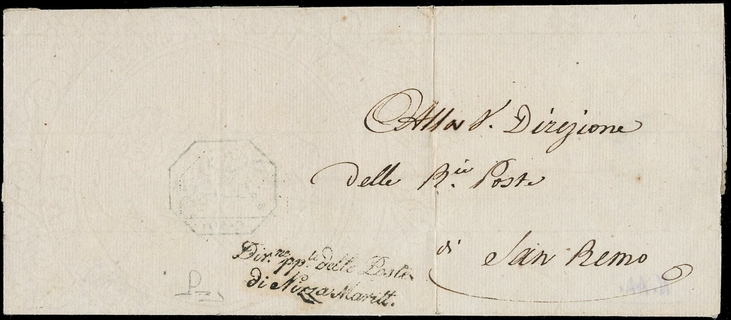 Alla V. Direzione
delle R.ie Poste
di San Remo
Dir.ne pp.le delle Poste
di Nizza Maritt.
P.